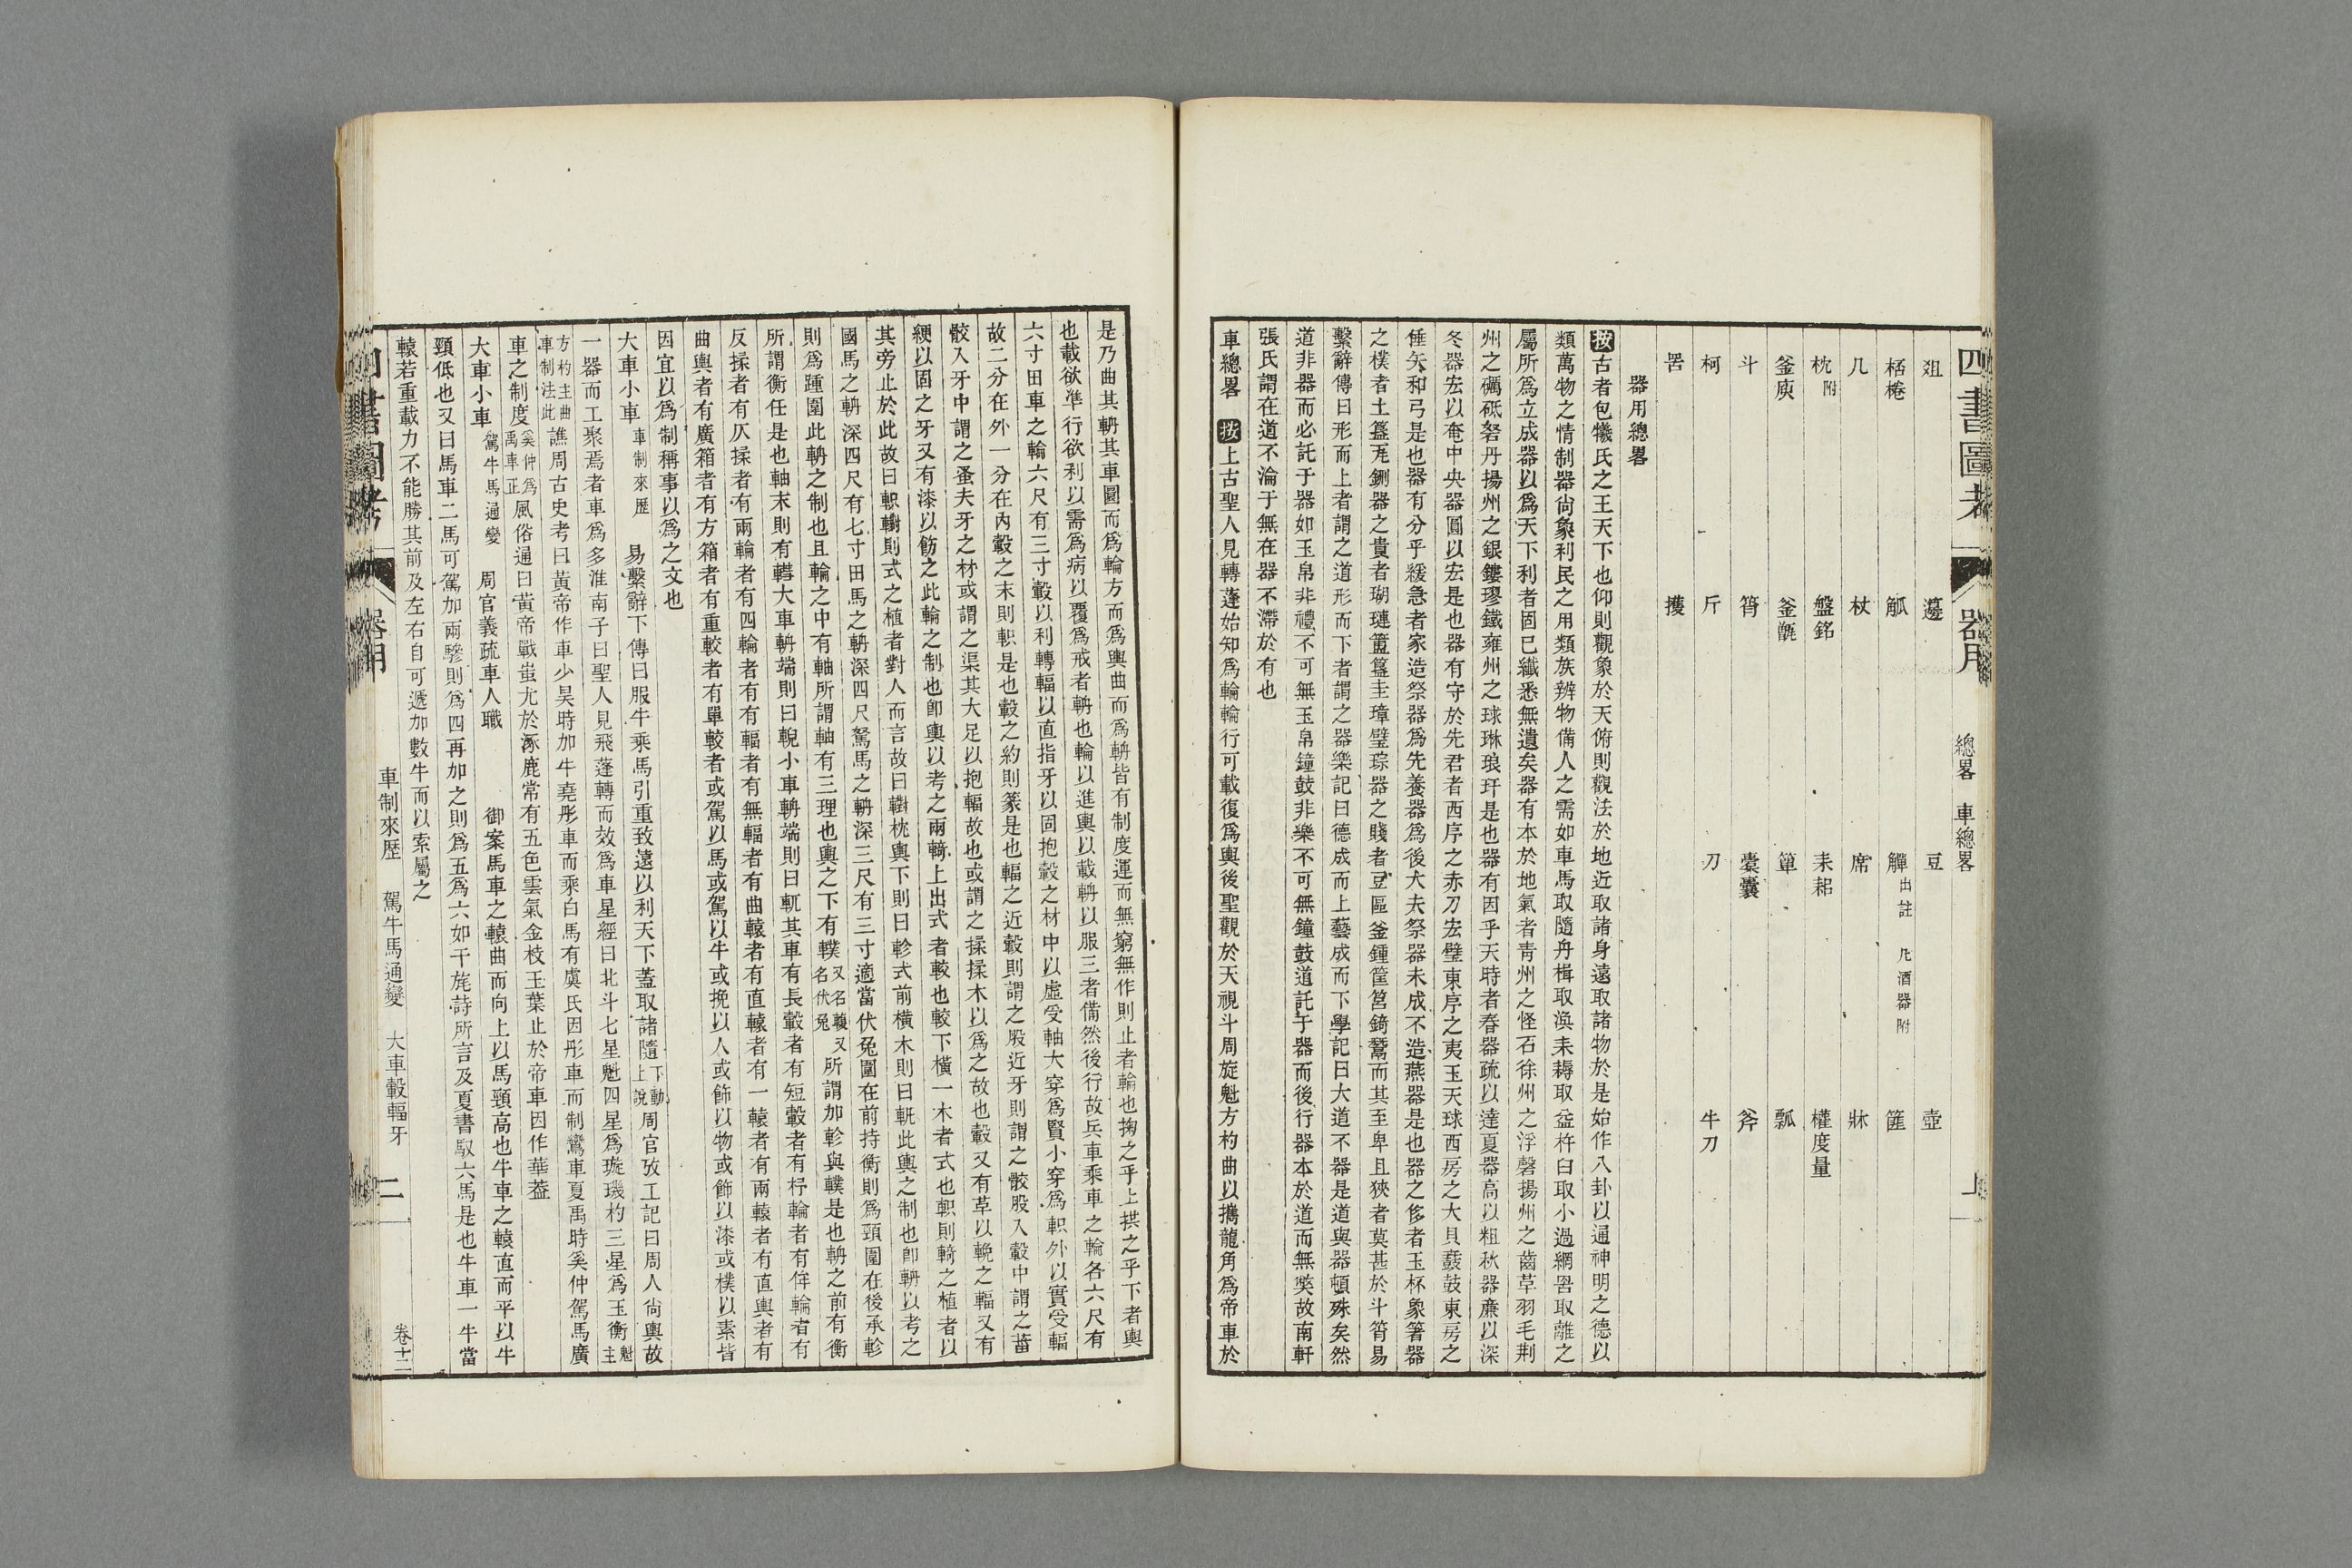 四書圖考 器用 總畧 車總畧 上
俎 籩 豆 壺
桮棬 觚 觶出註 凡酒器附 篚
几 杖 席 牀
枕附 盤銘 耒耜 權度量
釜庾 釜甑 簞 瓢
斗 筲 橐囊 斧
柯 斤 刀 牛刀
罟 擭
器用總畧
按古者包犧氏之王天下也仰則觀象於天俯則觀法於地近取諸身遠取諸物於是始作八卦以通神明之德以
類萬物之情制器尙象利民之用類族辨物備人之需如車馬取隨舟楫取渙耒耨取益杵臼取小過網罟取離之
屬所爲立成器以爲天下利者固已纖悉無遺矣器有本於地氣者靑州之怪石徐州之浮磬揚州之齒革羽毛荆
州之礪砥砮丹揚州之銀鏤璆鐵雍州之球琳琅玕是也器有因乎天時者春器疏以達夏器高以粗秋器廉以深
冬器宏以奄中央器圓以宏是也器有守於先君者西序之赤刀宏璧東序之夷玉天球西房之大貝鼖鼓東房之
倕矢和弓是也器有分乎緩急者家造祭器爲先養器爲後大夫祭器未成不造燕器是也器之侈者玉杯象箸器
之樸者土簋瓦鉶器之貴者瑚璉簠簋圭璋璧琮器之賤者豆區釜鍾筐筥錡鬵而其至卑且狹者莫甚於斗筲易
繫辭傳曰形而上者謂之道形而下者謂之器樂記曰德成而上藝成而下學記曰大道不器是道與器頓殊矣然
道非器而必託于器如玉帛非禮不可無玉帛鐘鼓非樂不可無鐘鼓道託于器而後行器本於道而無獘故南軒
張氏謂在道不淪于無在器不滯於有也
車總畧 按上古聖人見轉蓬始知爲輪輪行可載復爲輿後聖觀於天視斗周旋魁方杓曲以攜龍角爲帝車於
是乃曲其輈其車圜而爲輪方而爲輿曲而爲輈皆有制度運而無窮無作則止者輪也掬之乎上拱之乎下者輿
也載欲準行欲利以需爲病以覆爲戒者輈也輪以進輿以載輈以服三者備然後行故兵車乘車之輪各六尺有
六寸田車之輪六尺有三寸轂以利轉輻以直指牙以固抱轂之材中以虛受軸大穿爲賢小穿爲軹外以實受輻
故二分在外一分在內轂之末則軹是也轂之約則篆是也輻之近轂則謂之股近牙則謂之骹股入轂中謂之菑
骹入牙中謂之蚤夫牙之材或謂之渠其大足以抱輻故也或謂之揉揉木以爲之故也轂又有革以輓之輻又有
綆以固之牙又有漆以飭之此輪之制也卽輿以考之兩輢上出式者較也較下橫一木者式也軹則輢之植者以
其旁止於此故曰軹轛則式之植者對人而言故曰轛枕輿下則曰軫式前橫木則曰軓此輿之制也卽輈以考之
國馬之輈深四尺有七寸田馬之輈深四尺駑馬之輈深三尺有三寸適當伏兔圍在前持衡則爲頸圍在後承軫
則爲踵圍此輈之制也且輪之中有軸所謂軸有三理也輿之下有轐又名輹又名伏兔所謂加軫與轐是也輈之前有衡
所謂衡任是也軸末則有轊大車輈端則曰輗小車輈端則曰軏其車有長轂者有短轂者有杼輪者有侔輪者有
反揉者有仄揉者有兩輪者有四輪者有有輻者有無輻者有曲轅者有直轅者有一轅者有兩轅者有直輿者有
曲輿者有廣箱者有方箱者有重較者有單較者或駕以馬或駕以牛或挽以人或飾以物或飾以漆或樸以素皆
因宜以爲制稱事以爲之文也
大車小車車制來歷 易繫辭下傳曰服牛乘馬引重致遠以利天下蓋取諸隨下動上說周官攷工記曰周人尙輿故
一器而工聚焉者車爲多淮南子曰聖人見飛蓬轉而效爲車星經曰北斗七星魁四星爲璇璣杓三星爲玉衡魁主
方杓主曲車制法此譙周古史考曰黃帝作車少昊時加牛堯彤車而乘白馬有虞氏因彤車而制鸞車夏禹時奚仲駕馬廣
車之制度奚仲爲禹車正風俗通曰黃帝戰蚩尤於涿鹿常有五色雲氣金枝玉葉止於帝車因作華葢
大車小車駕牛馬通變 周官義疏車人職 御案馬車之轅曲而向上以馬頸高也牛車之轅直而平以牛
頸低也又曰馬車二馬可駕加兩驂則爲四再加之則爲五爲六如干旄詩所言及夏書馭六馬是也牛車一牛當
轅若重載力不能勝其前及左右自可遞加數牛而以索屬之
四書圖考 器用 車制來歷 駕牛馬通變 大車轂輻牙 二 卷十二